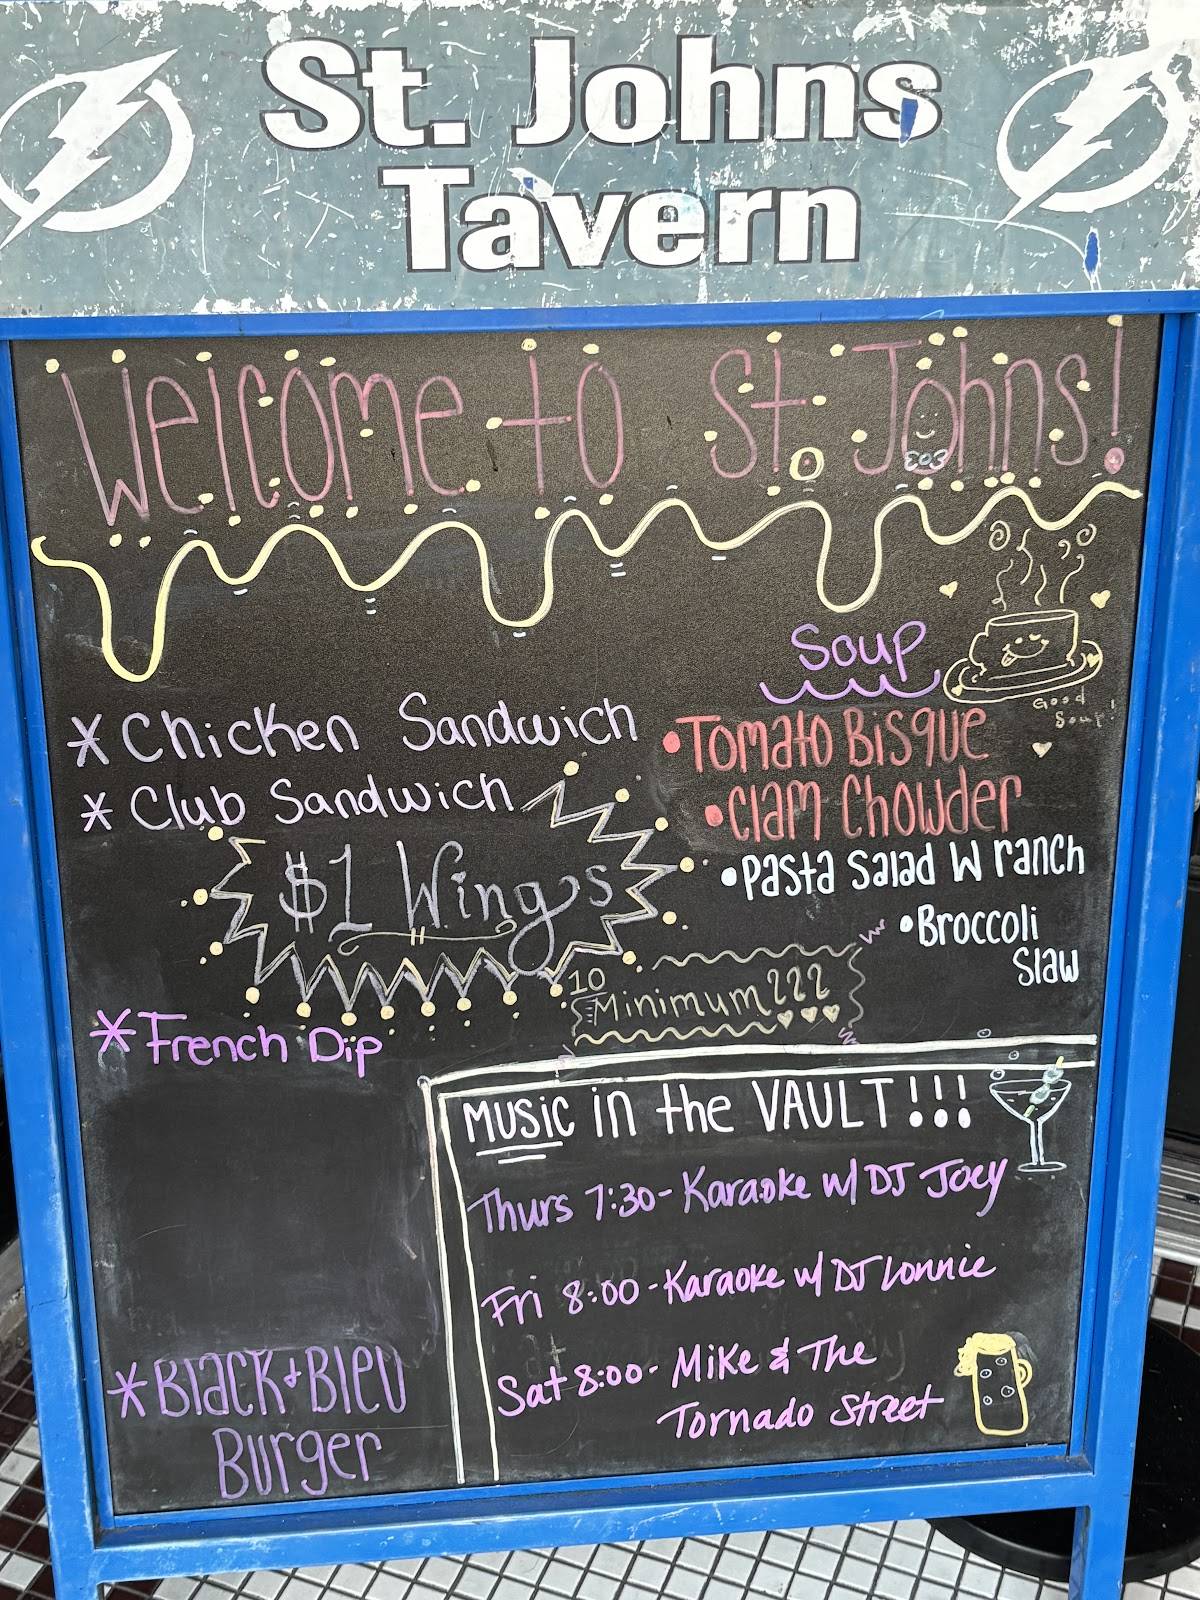 St. Johns
Tavern
Welcome to St. Johns!
Soup
Good
Soup!
* Chicken Sandwich
* Club Sandwich
$1 Wings
10
Minimum
* French Dip
* Black + Bleu
Burger
•Tomato Bisque
•Clam Chowder
•Pasta Salad W ranch
•Broccoli
Slaw
MUSIC in the VAULT!!!
Thurs 7:30 - Karaoke w/ DJ Joey
Fri 8:00 - Karaoke w/ DJ Lonnie
Sat 8:00 - Mike & The
Tornado Street